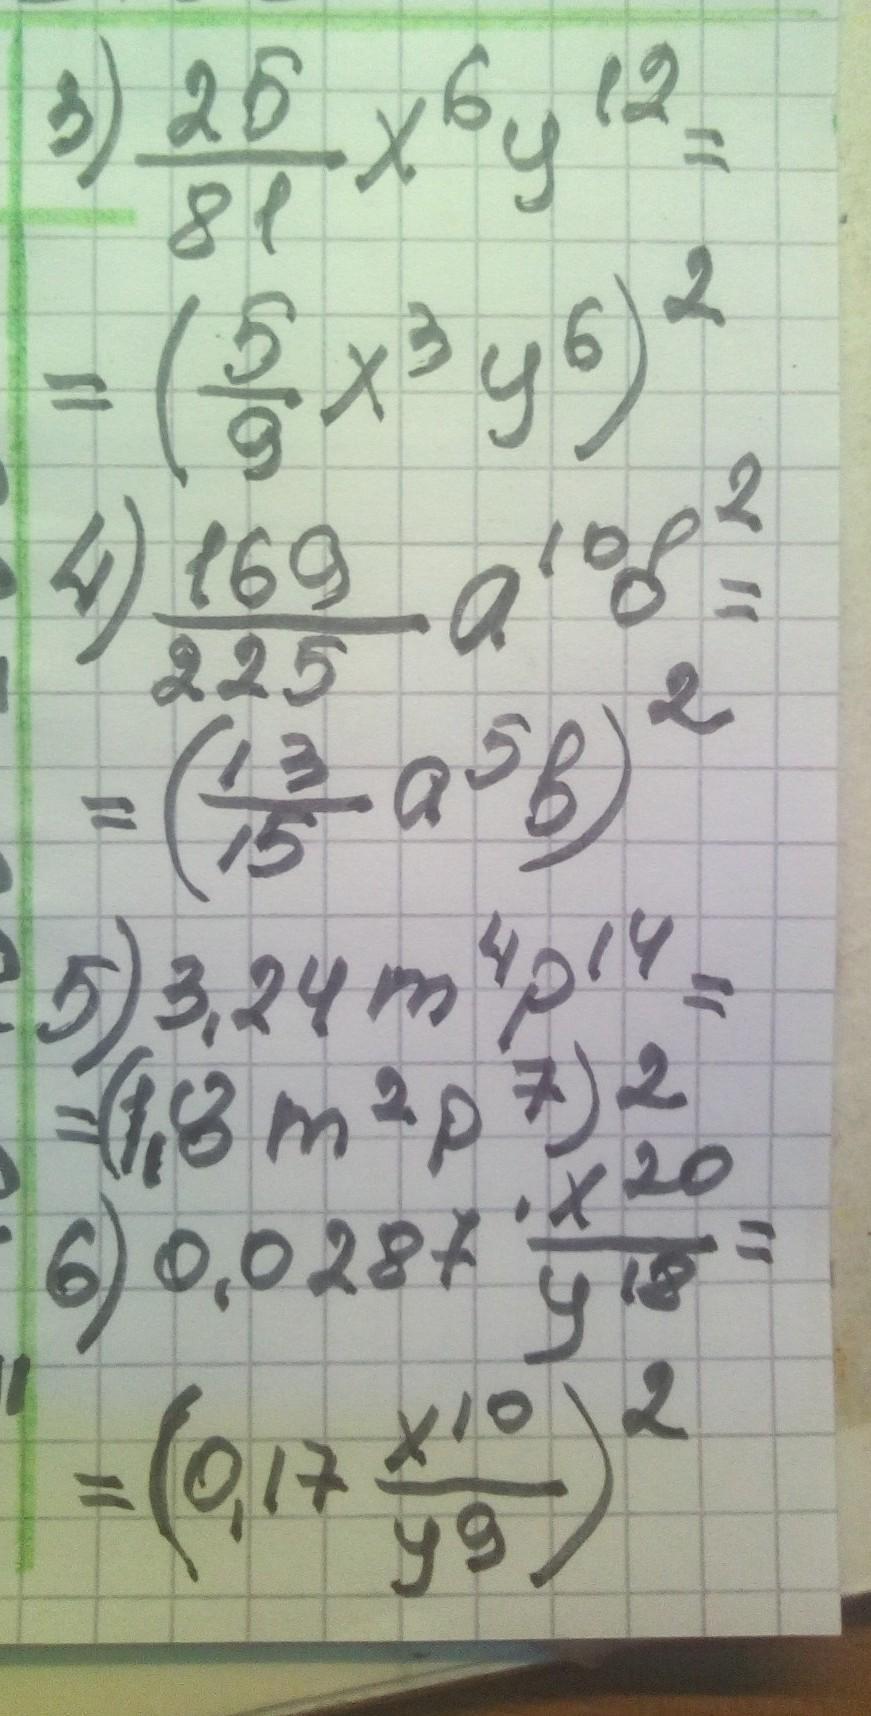 3) 25/81 x⁶y¹² =
= (5/9 x³y⁶)²
4) 169/225 a¹⁰б² =
= (13/15 a⁵b)²
5) 3,24 m⁴p¹⁴ =
= (1,8 m²p⁷)²
6) 0,0287 · x²⁰/y¹⁸ =
= (0,17 x¹⁰/y⁹)²